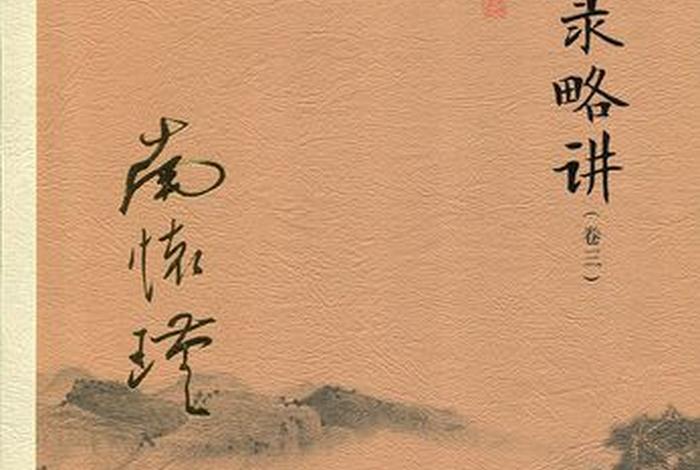 录略讲
（卷三）
南
怀
瑾